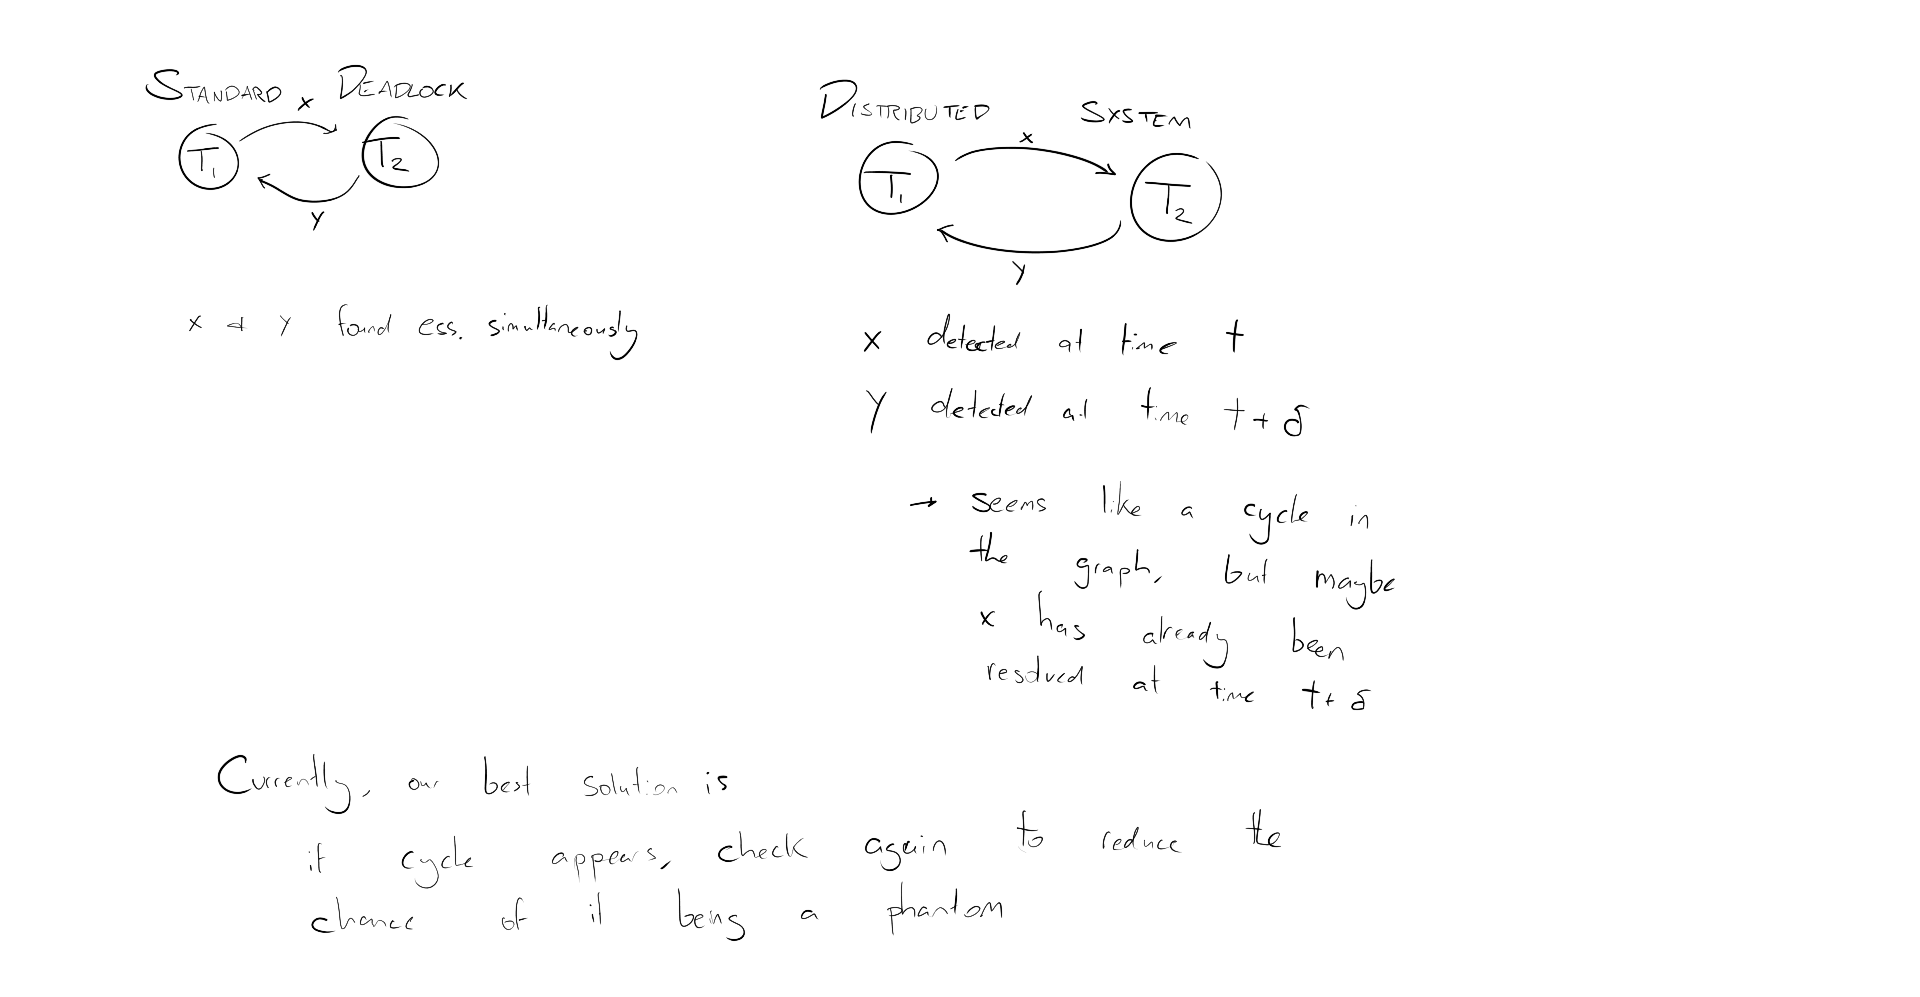 STANDARD DEADLOCK
x
T1 T2
y
x & y found ess. simultaneously
DISTRIBUTED SYSTEM
x
T1 T2
y
x detected at time t
y detected at time t + δ
→ seems like a cycle in
the graph, but maybe
x has already been
resolved at time t + δ
Currently, our best solution is
if cycle appears, check again to reduce the
chance of it being a phantom